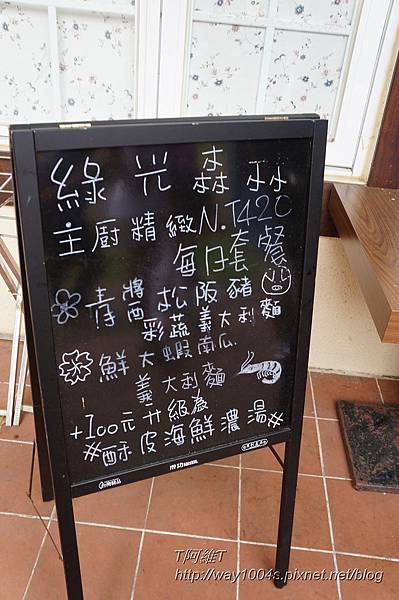 綠光森林
主廚精緻N.T420
每日套餐
青醬松阪豬
彩蔬義大利麵
鮮大蝦南瓜
義大利麵
+100元升級為
※酥皮海鮮濃湯※
T阿維T
http://way1004s.pixnet.net/blog